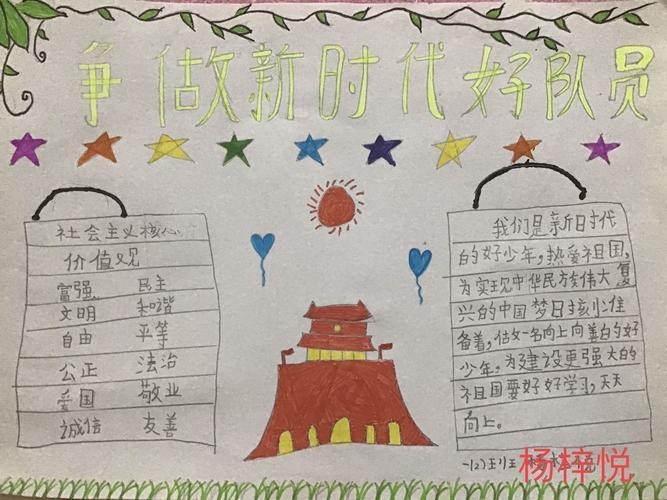 争做新时代好队员
社会主义核心
价值观
富强 民主
文明 和谐
自由 平等
公正 法治
爱国 敬业
诚信 友善
我们是新时代
的好少年，热爱祖国，
为实现中华民族伟大复
兴的中国梦时刻准
备着，做一名向上向善的好
少年，为建设更强大的
祖国要好好学习，天天
向上。
一(2)班
杨梓悦